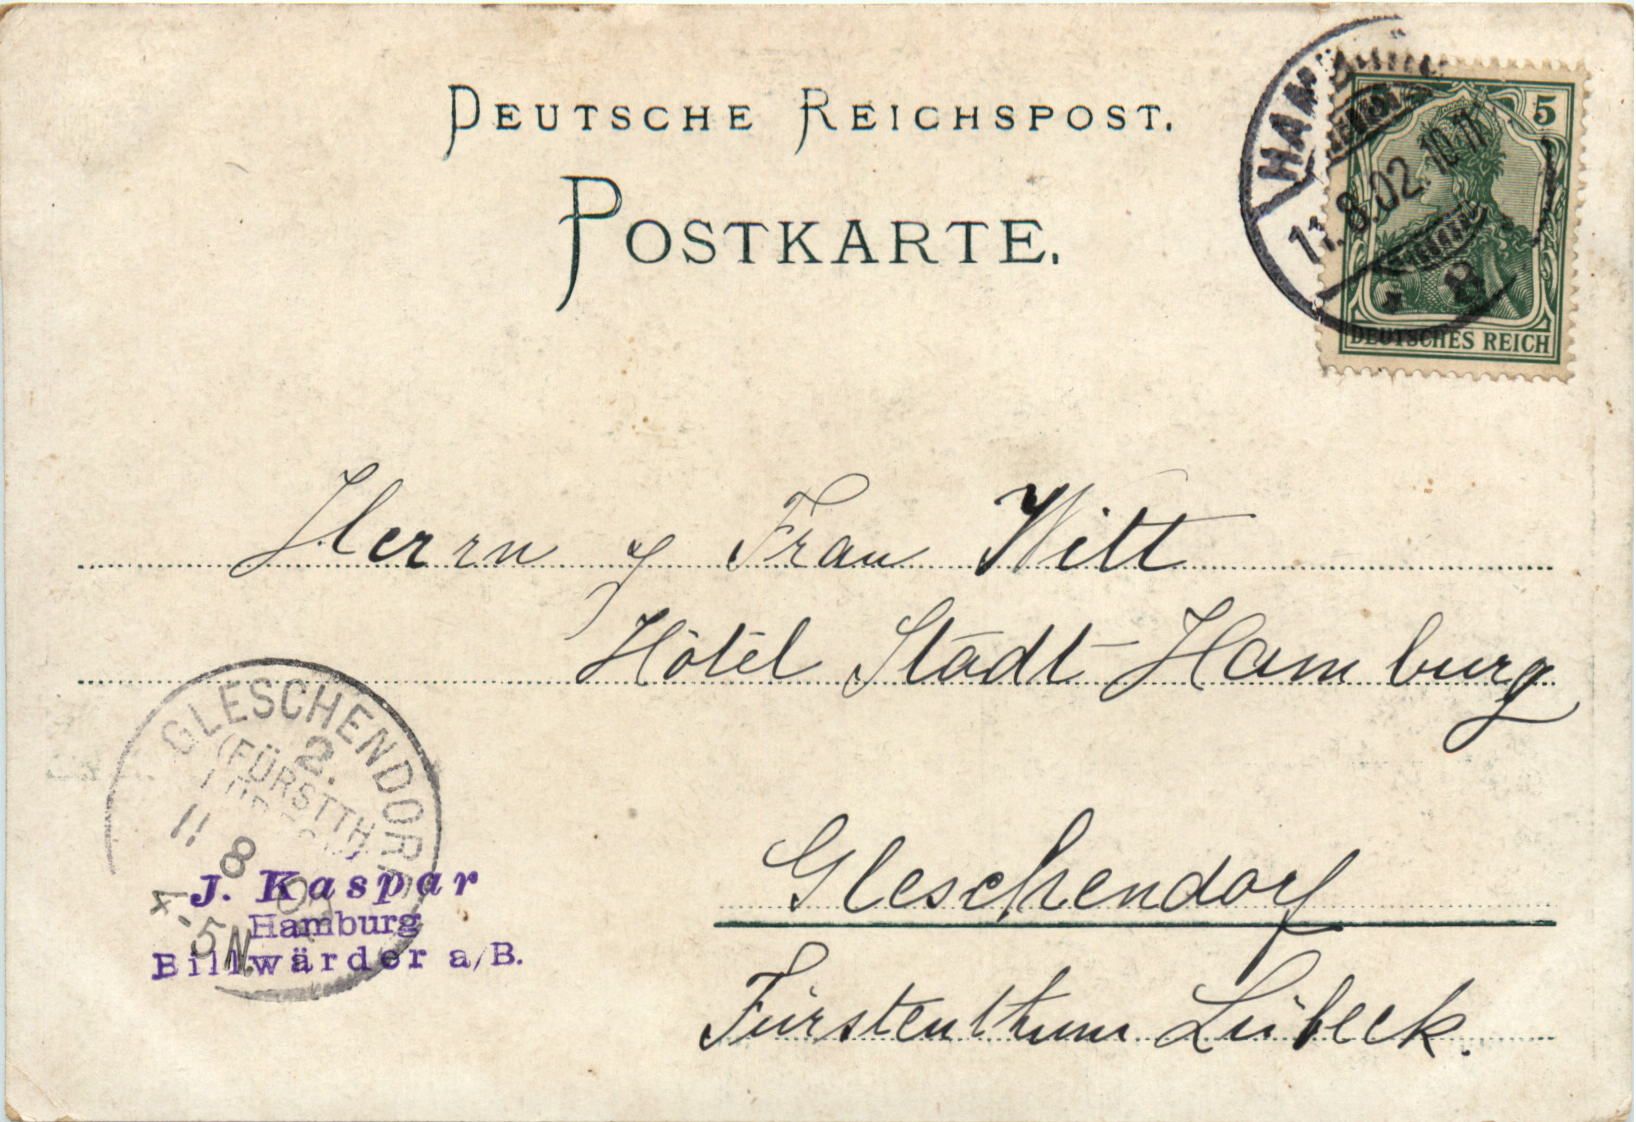 DEUTSCHE REICHSPOST.
POSTKARTE.
HAMBURG
11.8.02. 10-11
* 8
5
DEUTSCHES REICH
Herrn & Frau Witt
Hôtel Stadt Hamburg
Gleschendorf
Fürstenthum Lübeck.
GLESCHENDORF
2.
(FÜRSTTH.
11 8
4-5N.
J. Kaspar
Hamburg
Billwärder a/B.